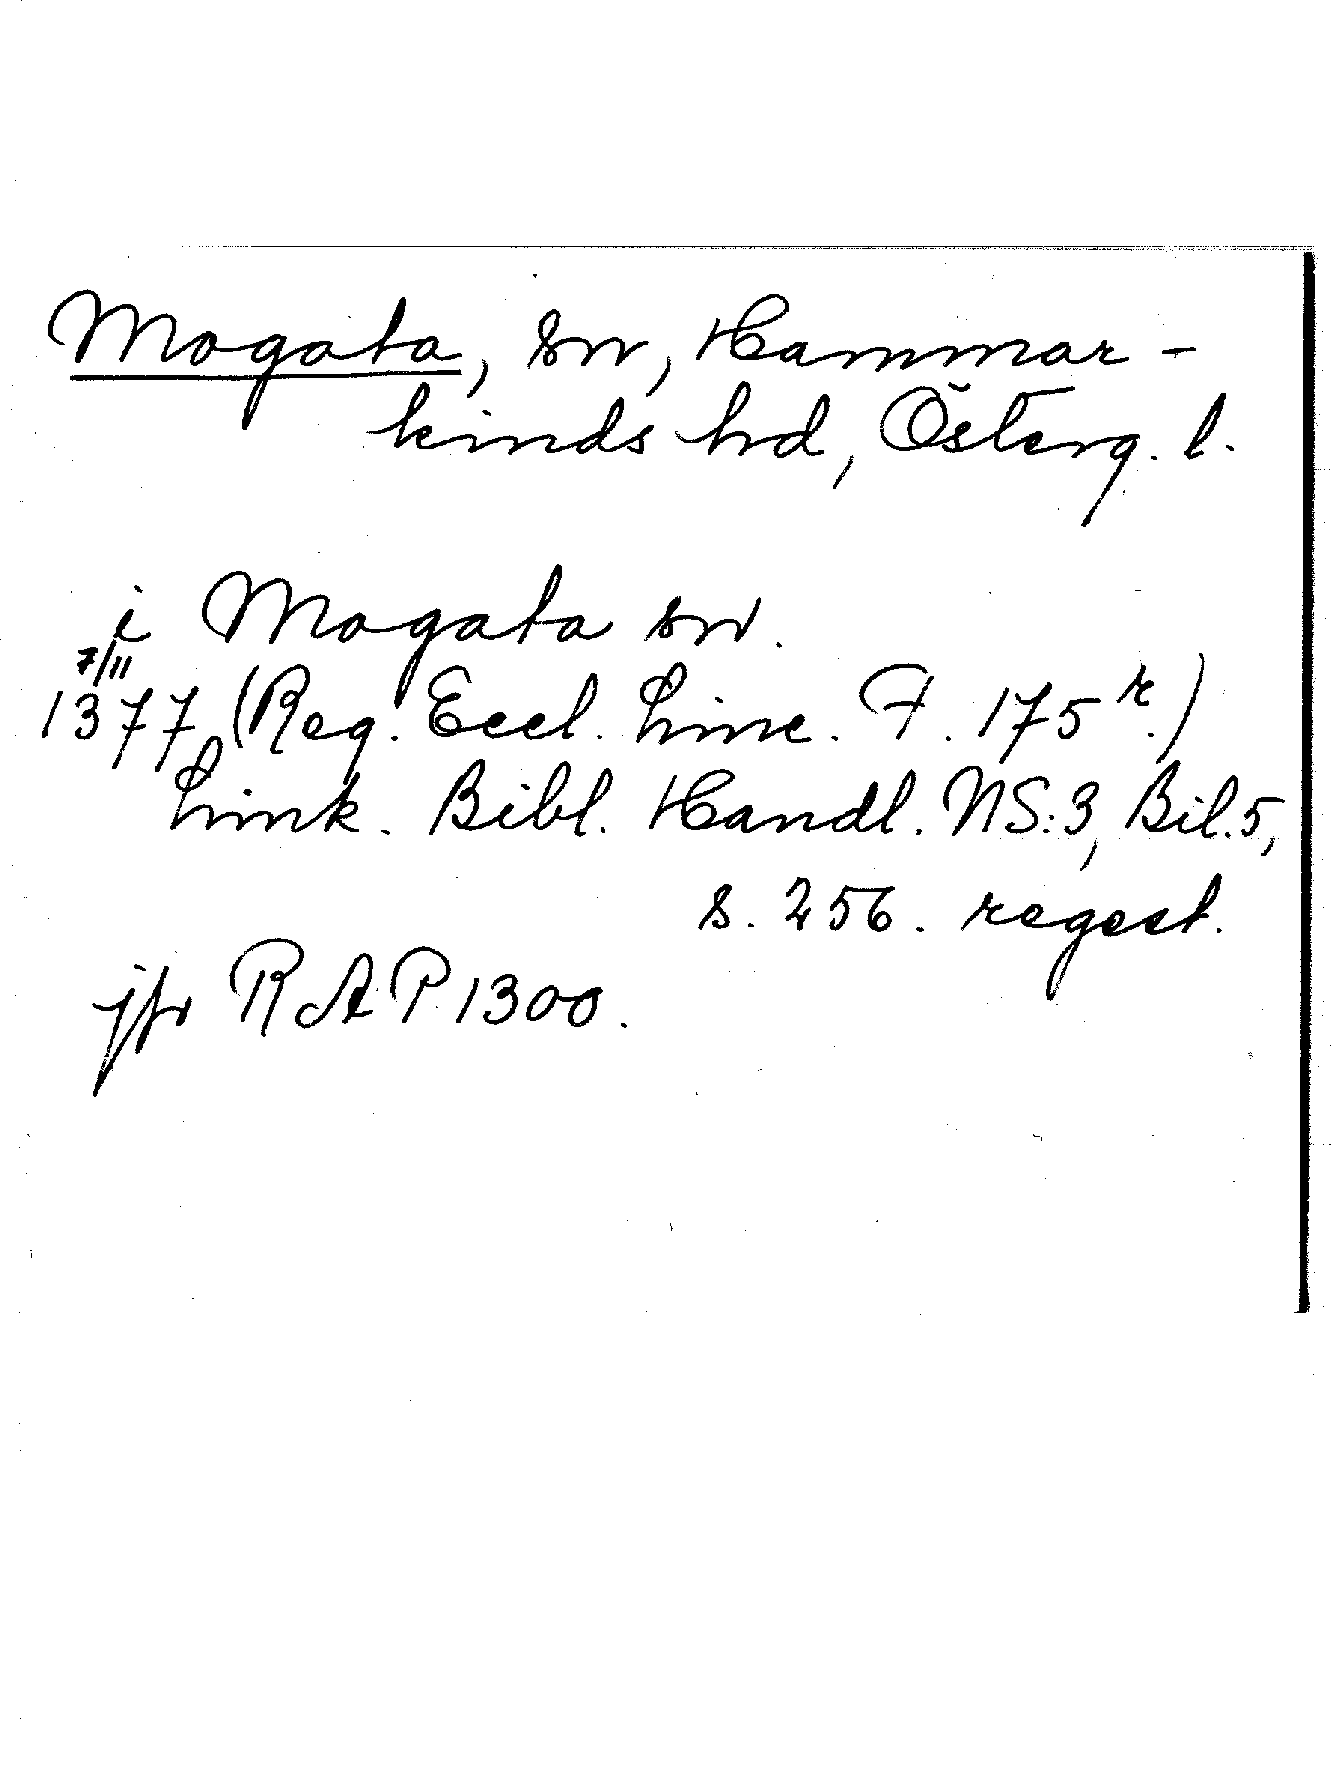 Mogata, sn, Hammar-
kinds hd, Österg. l.
i Mogata sn.
7/11
1377 (Reg. Eccl. Linc. F. 175 r.)
Link. Bibl. Handl. NS:3, Bil.5,
s. 256. regest.
jfr RAP 1300.